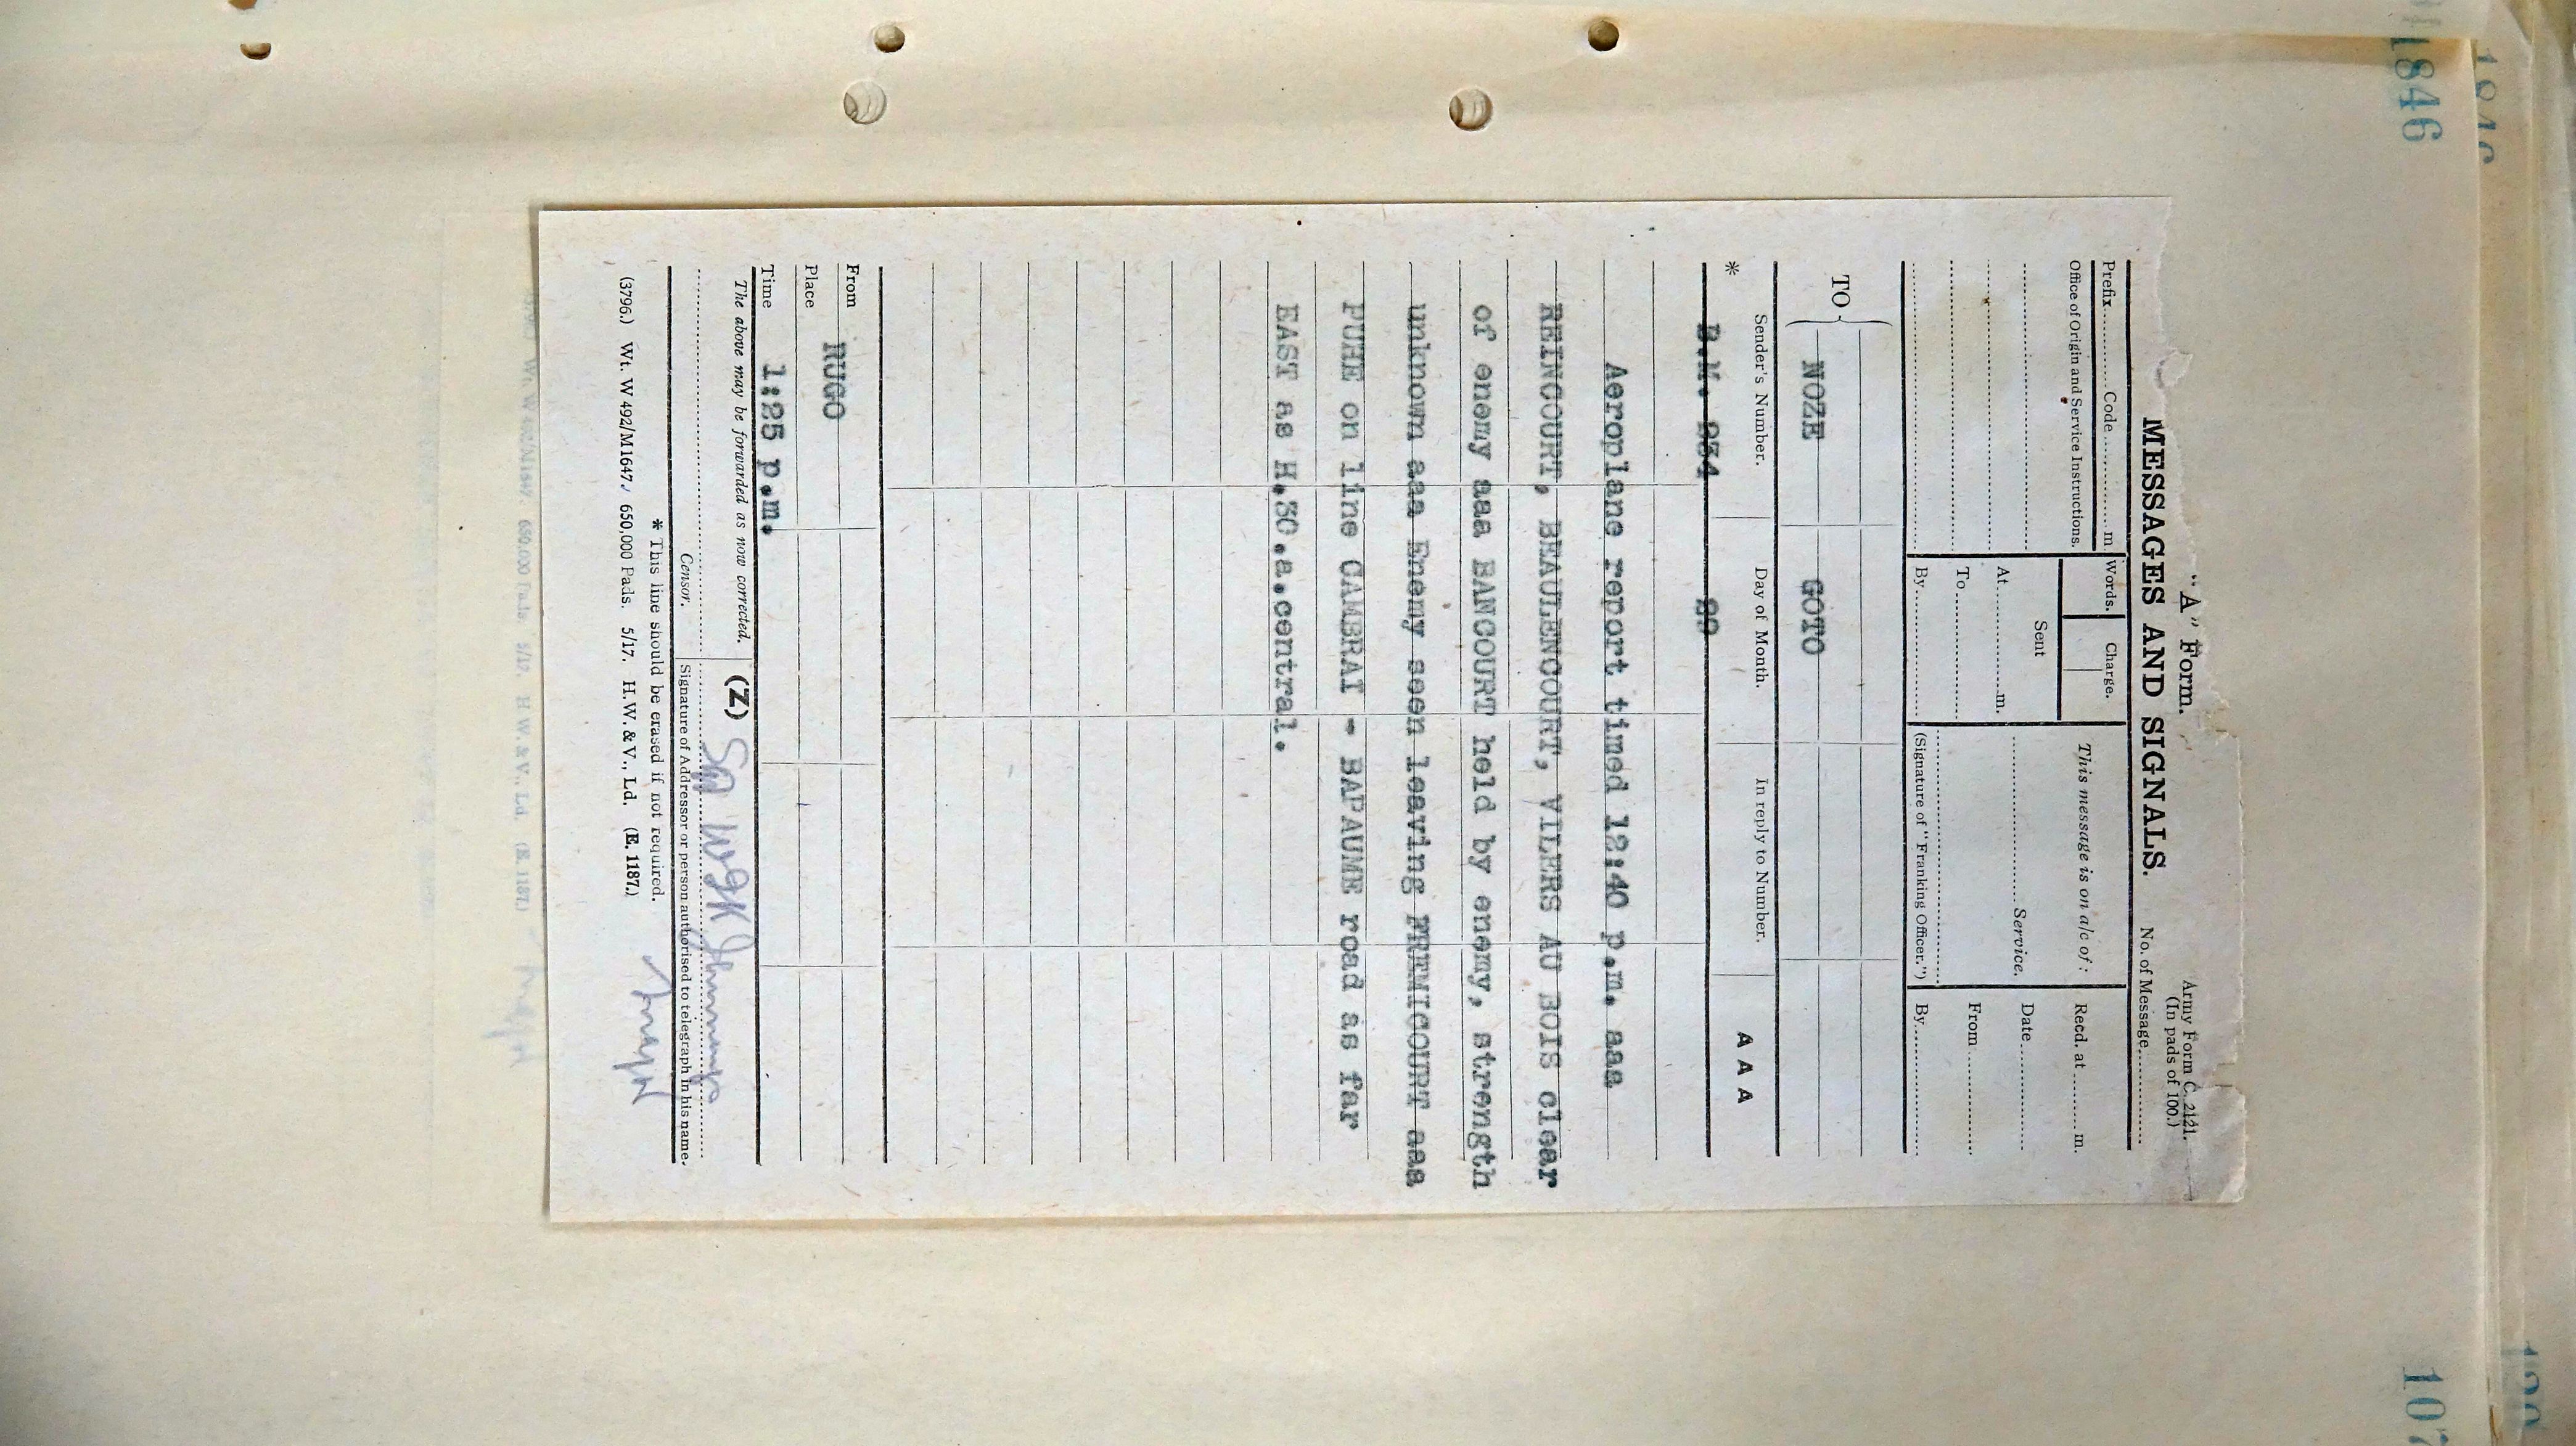 1846
1846
"A" Form.
Army Form C. 2121.
(In pads of 100.)
MESSAGES AND SIGNALS.
No. of Message..........
Prefix.......... Code .......... m
Words.
Charge.
This message is on a/c of :
Recd. at ........ m.
Office of Origin and Service Instructions.
Sent
.......... Service.
Date ..........
At..........m.
From ..........
To ..........
By..........
(Signature of "Franking Officer.")
By..........
TO
NOZE
GOTO
Sender's Number.
Day of Month.
In reply to Number.
A A A
*
B.M. 934
29
Aeroplane report timed 12:40 p.m. aaa
REINCOURT, BEAULENCOURT, VILERS AU BOIS clear
of enemy aaa BANCOURT held by enemy, strength
unknown aaa Enemy seen leaving FREMICOURT aaa
PUHE on line CAMBRAI - BAPAUME road as far
EAST as H.30.a.central.
From
RUGO
Place
Time
1:25 p.m.
The above may be forwarded as now corrected.
(Z)
Censor.
Signature of Addressor or person authorised to telegraph in his name.
* This line should be erased if not required.
(3796.) Wt. W 492/M1647. 650,000 Pads. 5/17. H.W. & V., Ld. (E. 1187.)
107